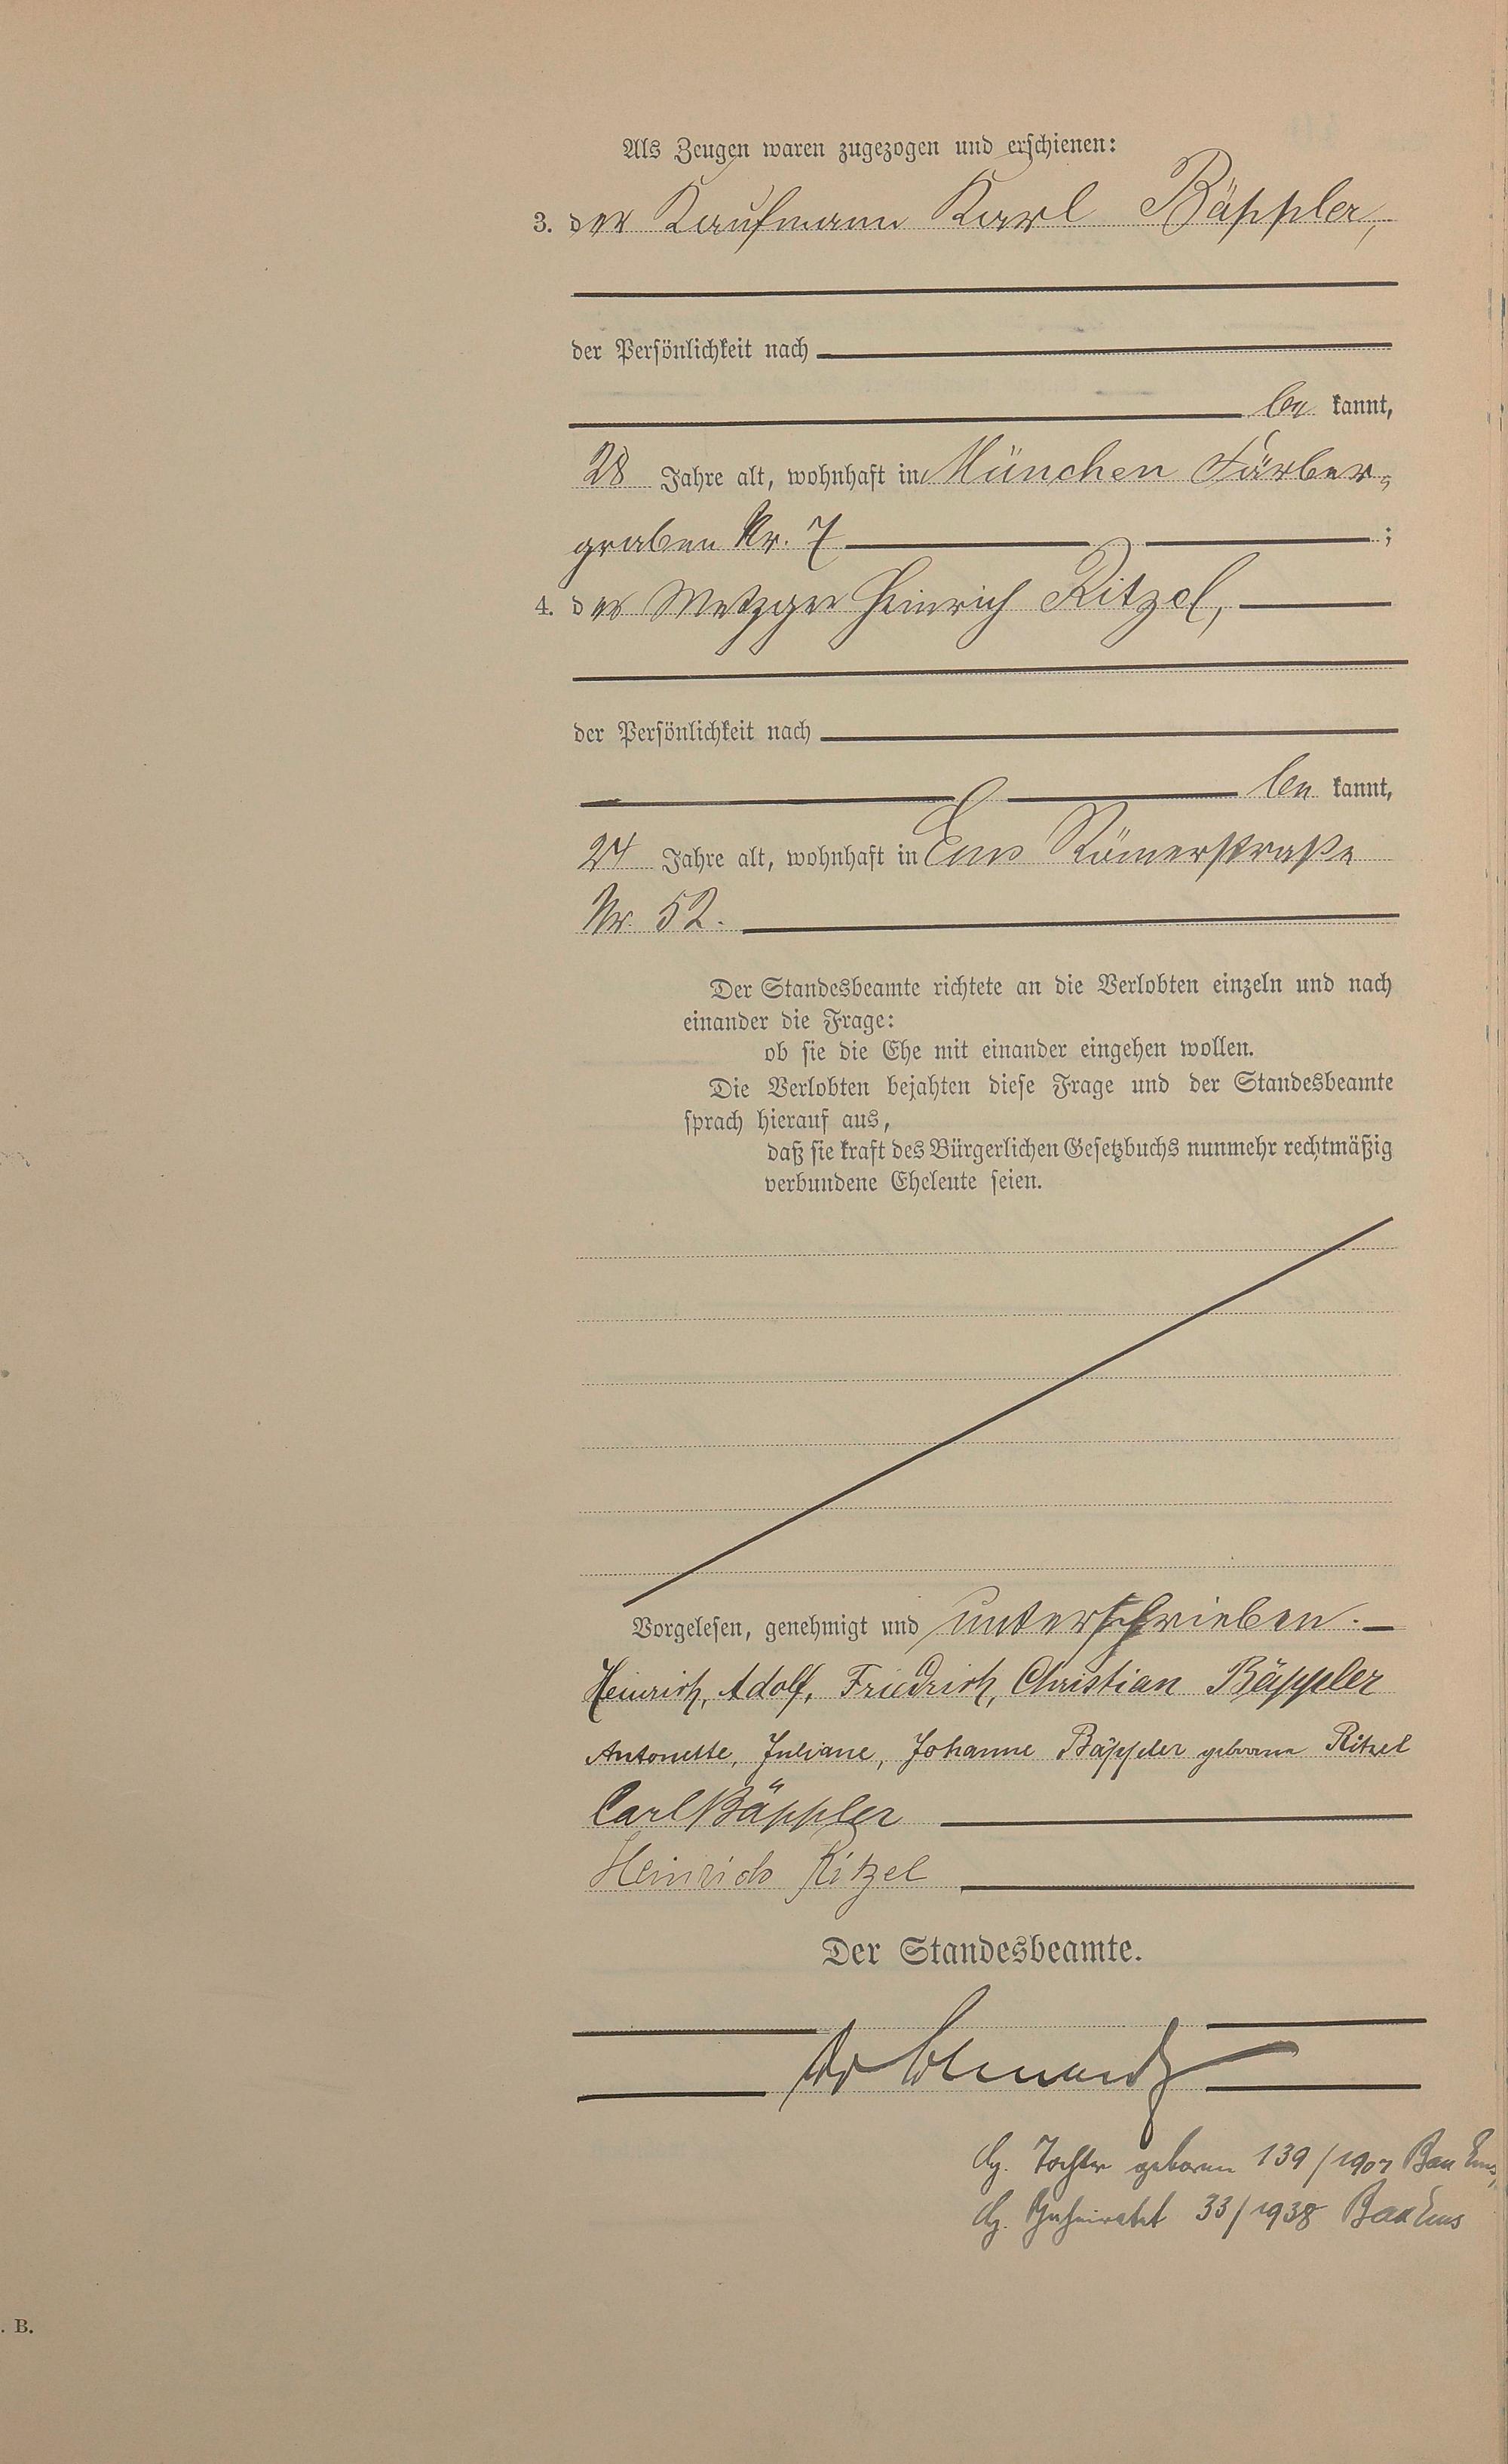 Als Zeugen waren zugezogen und erschienen:
3. der Kaufmann Karl Bäppler,
der Persönlichkeit nach
be kannt,
28 Jahre alt, wohnhaft in München Färber-
graben Nr. 7 ;
4. der Metzger Heinrich Ritzel,
der Persönlichkeit nach
be kannt,
24 Jahre alt, wohnhaft in Ems Römerstraße
Nr. 52.
Der Standesbeamte richtete an die Verlobten einzeln und nach
einander die Frage:
ob sie die Ehe mit einander eingehen wollen.
Die Verlobten bejahten diese Frage und der Standesbeamte
sprach hierauf aus,
daß sie kraft des Bürgerlichen Gesetzbuchs nunmehr rechtmäßig
verbundene Eheleute seien.
Vorgelesen, genehmigt und unterschrieben.
Heinrich, Adolf, Friedrich, Christian Bäppler
Antonette, Juliane, Johanne Bäppler geborene Ritzel
Carl Bäppler
Heinrich Ritzel
Der Standesbeamte.
Tochter geboren 139/1907 Bad Ems,
33/1938 Bad Ems
. B.